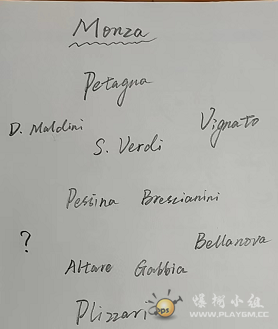 Monza
Petagna
D. Maldini Vignato
S. Verdi
Pessina Brescianini
? Bellanova
Altare Gabbia
Plizzari
爆柯小组
WWW.PLAYGM.CC